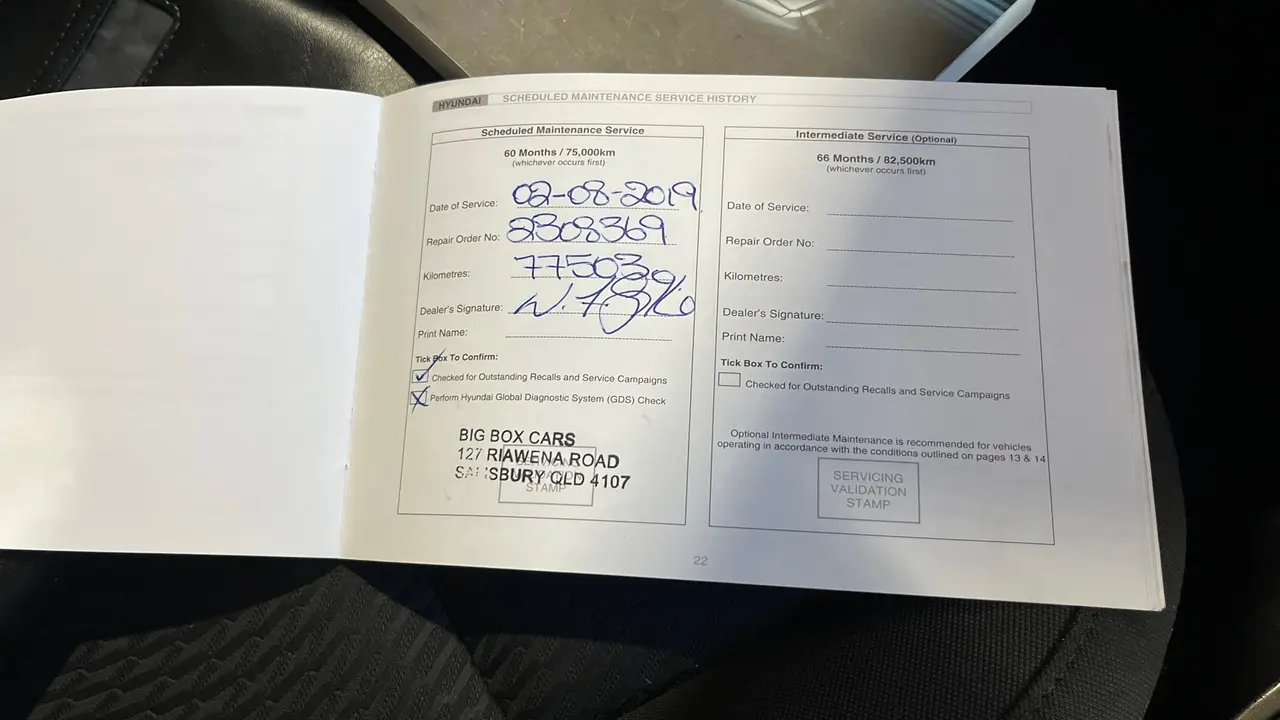 HYUNDAI SCHEDULED MAINTENANCE SERVICE HISTORY
Scheduled Maintenance Service
60 Months / 75,000km
(whichever occurs first)
Date of Service: 02-08-2019
Repair Order No: 2308369
Kilometres: 77503
Dealer's Signature:
Print Name:
Tick Box To Confirm:
Checked for Outstanding Recalls and Service Campaigns
Perform Hyundai Global Diagnostic System (GDS) Check
BIG BOX CARS
127 RIAWENA ROAD
SALISBURY QLD 4107
STAMP
Intermediate Service (Optional)
66 Months / 82,500km
(whichever occurs first)
Date of Service:
Repair Order No:
Kilometres:
Dealer's Signature:
Print Name:
Tick Box To Confirm:
Checked for Outstanding Recalls and Service Campaigns
Optional Intermediate Maintenance is recommended for vehicles
operating in accordance with the conditions outlined on pages 13 & 14
SERVICING
VALIDATION
STAMP
22